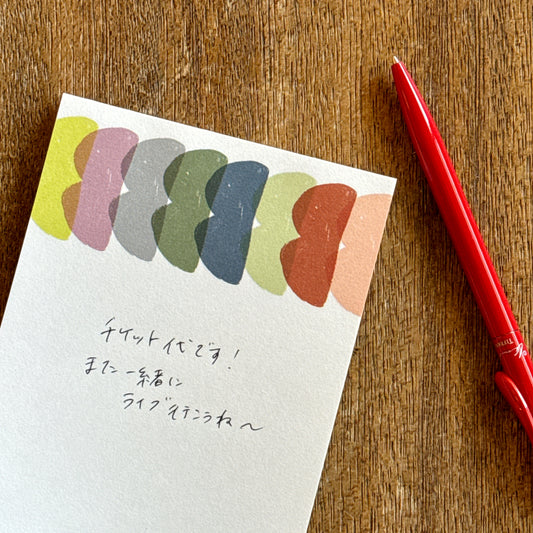 チケット代です!
また一緒に
ライブ行こうね〜